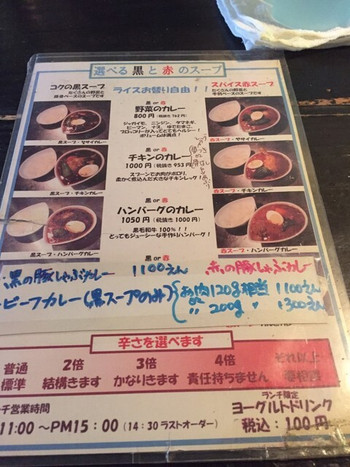 選べる 黒 と 赤 のスープ
コクの黒スープ
ライスお替り自由！！
スパイス赤スープ
黒 or 赤
野菜のカレー
800円（税抜き762円）
ジャガイモ、ニンジン、タマネギ
黒スープ・ヤサイカレー
赤スープ・ヤサイカレー
黒 or 赤
チキンのカレー
1000円（税抜き953円）
スプーンでお肉がほぐれる
柔かく煮込んだ大きなチキンレッグ！
黒スープ・チキンカレー
赤スープ・チキンカレー
黒 or 赤
ハンバーグのカレー
1050円（税抜き1000円）
黒毛和牛100％！！
とってもジューシーな手作りハンバーグ！
黒スープ・ハンバーグカレー
赤スープ・ハンバーグカレー
・黒の豚しゃぶカレー 1100えん 赤の豚しゃぶカレー
・ビーフカレー(黒スープのみ) お肉120g相当 1100えん
200g 1300えん
辛さを選べます
普通 2倍 3倍 4倍 それ以上
標準 結構きます かなりきます 責任持ちません
ンチ営業時間
11:00 〜PM15：00（14：30 ラストオーダー）
ランチ限定
ヨーグルトドリンク
税込：100円